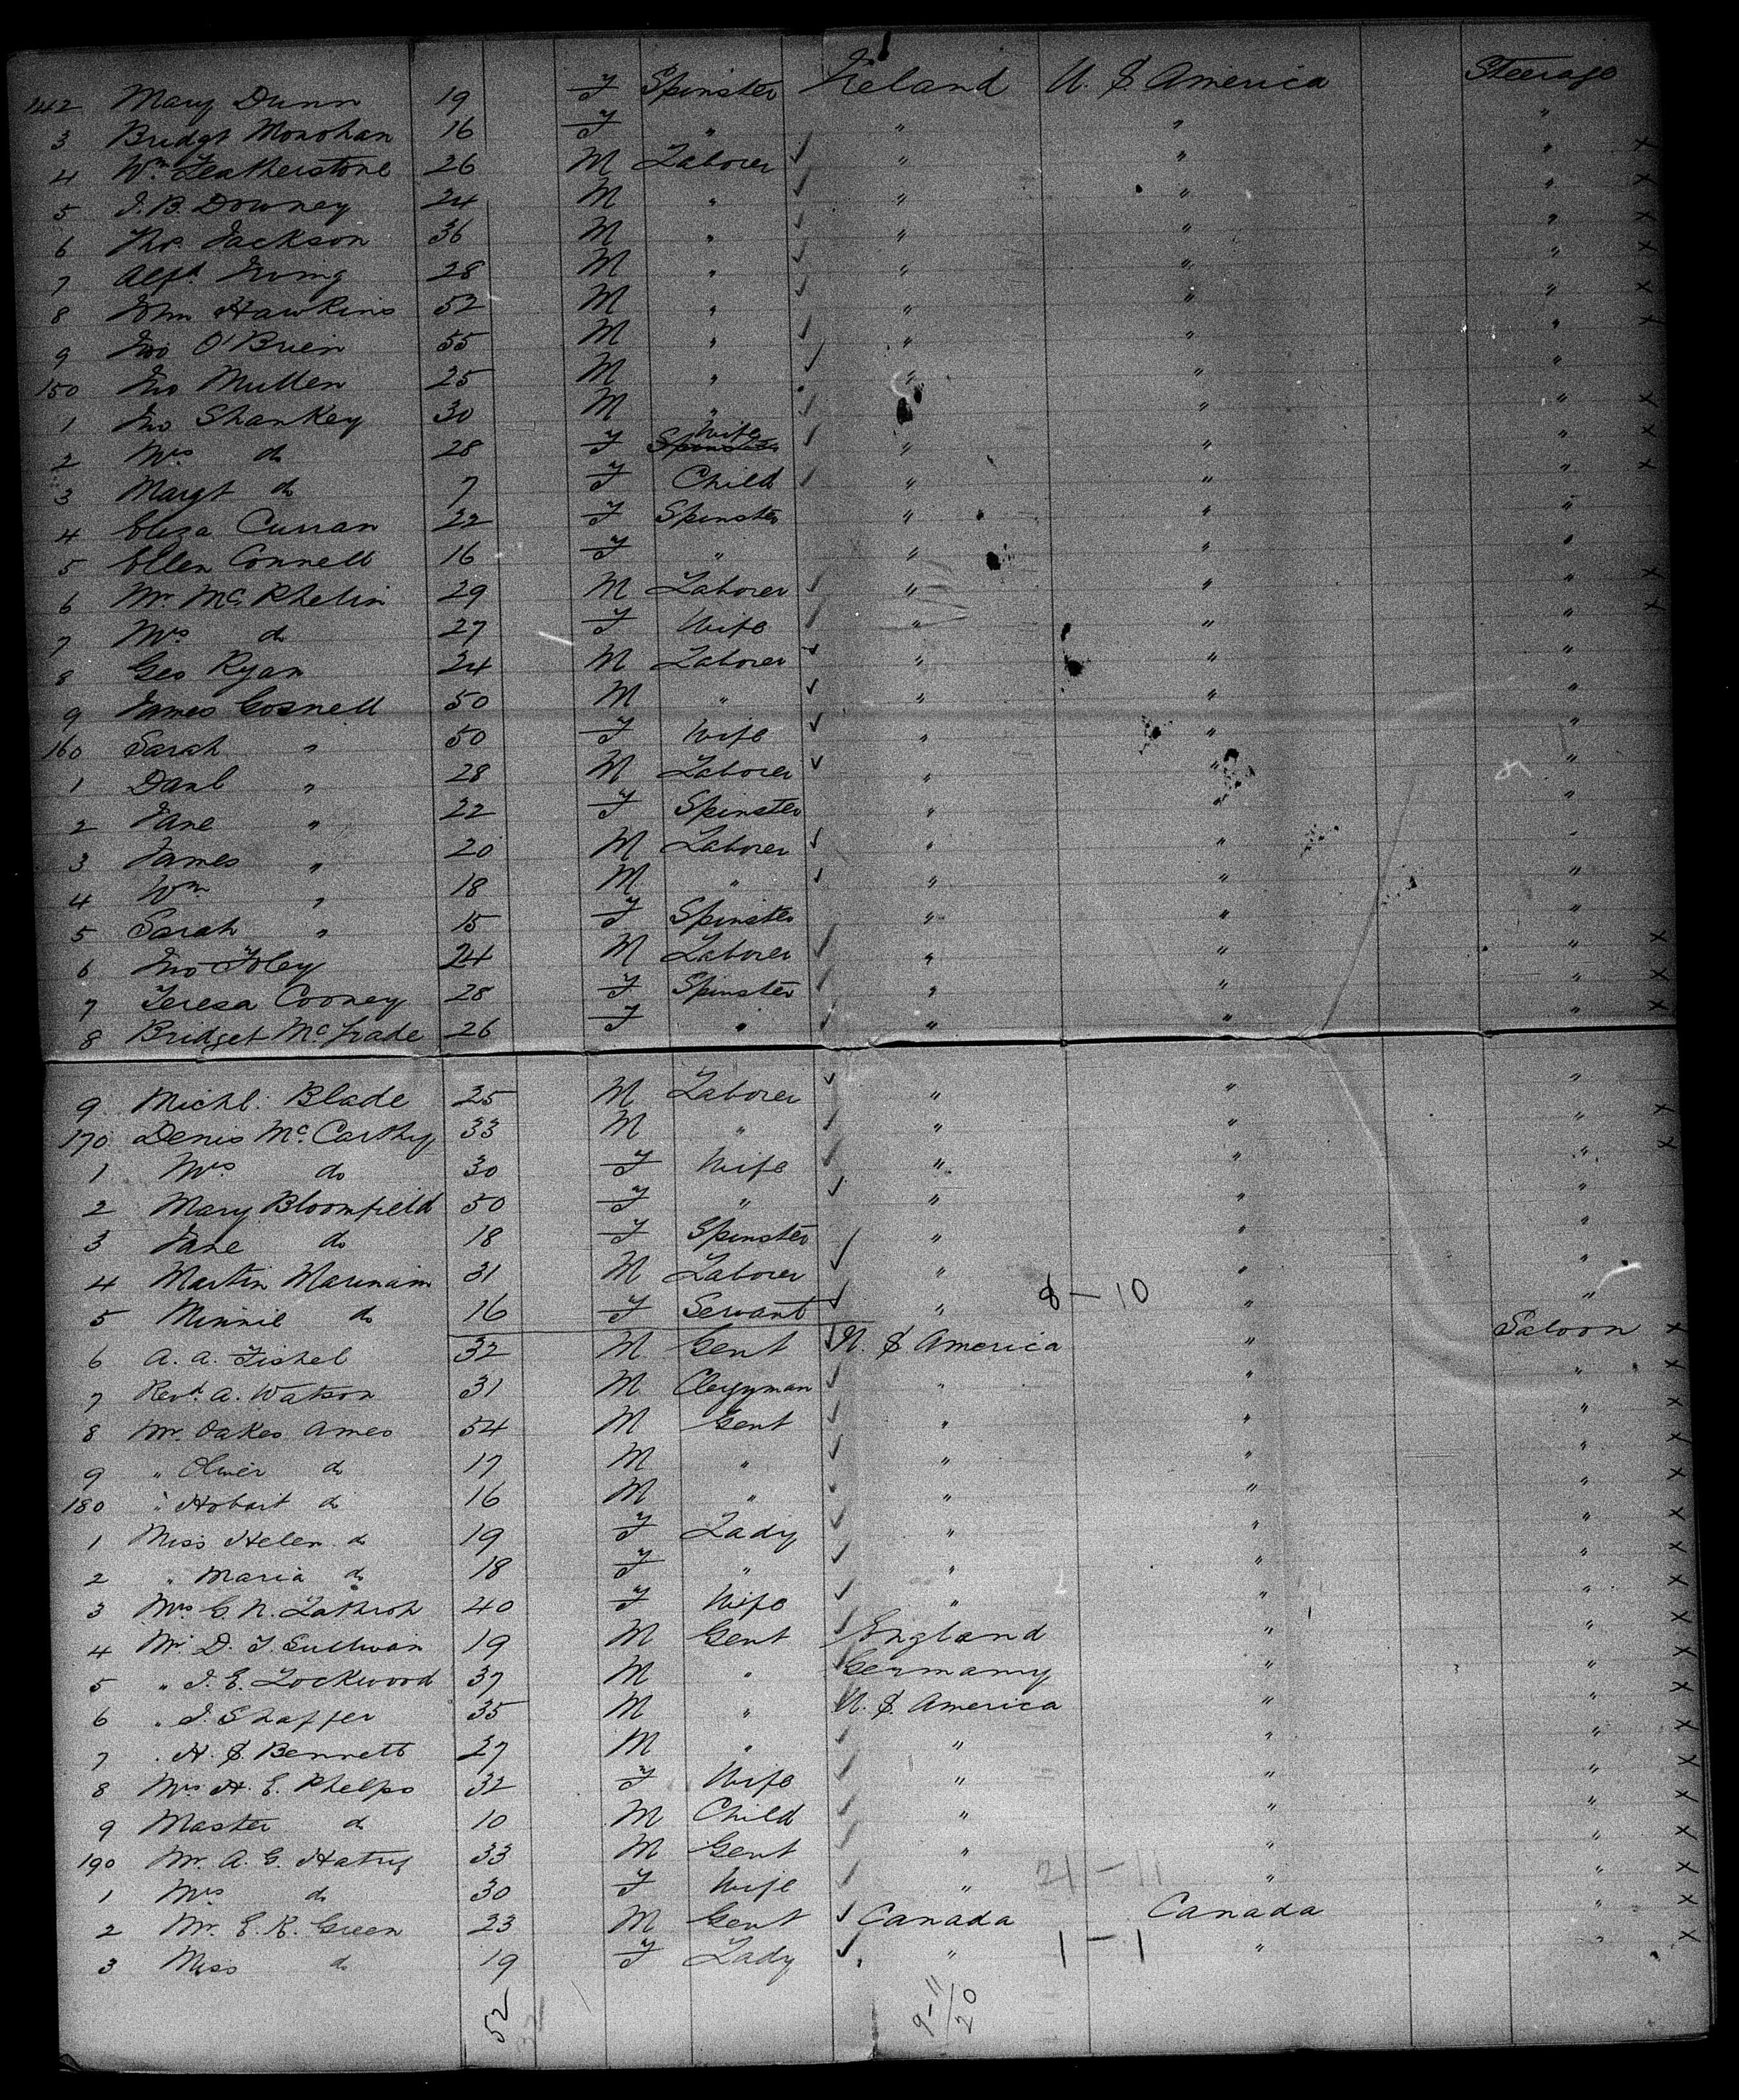 142 Mary Dunn 19 F Spinster Ireland U. S America Steerage
3 Bridgt Monohan 16 F " " " "
4 Wm Featherstone 26 M Laborer ✓ " " " x
5 J. B. Downey 24 M " ✓ " " " x
6 Thos. Jackson 36 M " ✓ " " " x
7 Alfd. Irving 28 M " ✓ " " " x
8 John Hawkins 52 M " ✓ " " " x
9 Jno O'Brien 55 M " ✓ " " " x
150 Jno Mullen 25 M " ✓ " " "
1 Jno Shankey 30 M " ✓ " " " x
2 Mrs do 28 F Wife ✓ " " " x
3 Margt do 7 F Child ✓ " " " x
4 Eliza Curran 22 F Spinster " " "
5 Ellen Connell 16 F " " " "
6 Mr. Mc Phelin 29 M Laborer ✓ " " " x
7 Mrs do 27 F Wife ✓ " " " x
8 Geo Ryan 24 M Laborer ✓ " " "
9 James Gosnell 50 M " ✓ " " "
160 Sarah " 50 F Wife ✓ " " "
1 Danl " 28 M Laborer ✓ " " "
2 Jane " 22 F Spinster " " "
3 James " 20 M Laborer ✓ " " "
4 Wm " 18 M " ✓ " " "
5 Sarah " 15 F Spinster " " "
6 Jno Foley 24 M Laborer ✓ " " " x
7 Teresa Cooney 28 F Spinster ✓ " " " x
8 Bridget Mc Grade 26 F " ✓ " " " x
9 Michl. Blade 25 M Laborer ✓ " " "
170 Denis Mc Carthy 33 M " ✓ " " " x
1 Mrs do 30 F Wife ✓ " " " x
2 Mary Bloomfield 50 F " ✓ " " "
3 Jane do 18 F Spinster " " "
4 Martin 31 M Laborer ✓ " " "
5 Minnie do 16 F Servant ✓ " 8-10 " "
6 A. A. Fishel 32 M Gent ✓ U. S America " Saloon x
7 Revd. A. Watson 31 M Clergyman ✓ " " " x
8 Mr. Oakes Ames 54 M Gent ✓ " " " x
9 " Oliver do 17 M " ✓ " " " x
180 " Hobart do 16 M " ✓ " " " x
1 Miss Helen do 19 F Lady ✓ " " " x
2 " Maria do 18 F " ✓ " " " x
3 Mrs G. N. Lathrop 40 F Wife ✓ " " " x
4 Mr. D. T. Sullivan 19 M Gent ✓ England " " x
5 " J. E. Lockwood 37 M " ✓ Germany " " x
6 " J. Shaffer 35 M " ✓ U. S. America " " x
7 " H. S. Bennett 27 M " ✓ " " " x
8 Mrs H. E. Phelps 32 F Wife ✓ " " " x
9 Master do 10 M Child ✓ " " " x
190 Mr. A. G. 33 M Gent ✓ " " " x
1 Mrs do 30 F Wife ✓ " 21-11 " " x
2 Mr. E. R. Green 23 M Gent ✓ Canada Canada " x
3 Miss do 19 F Lady ✓ " 1-1 " " x
52 9-11/20